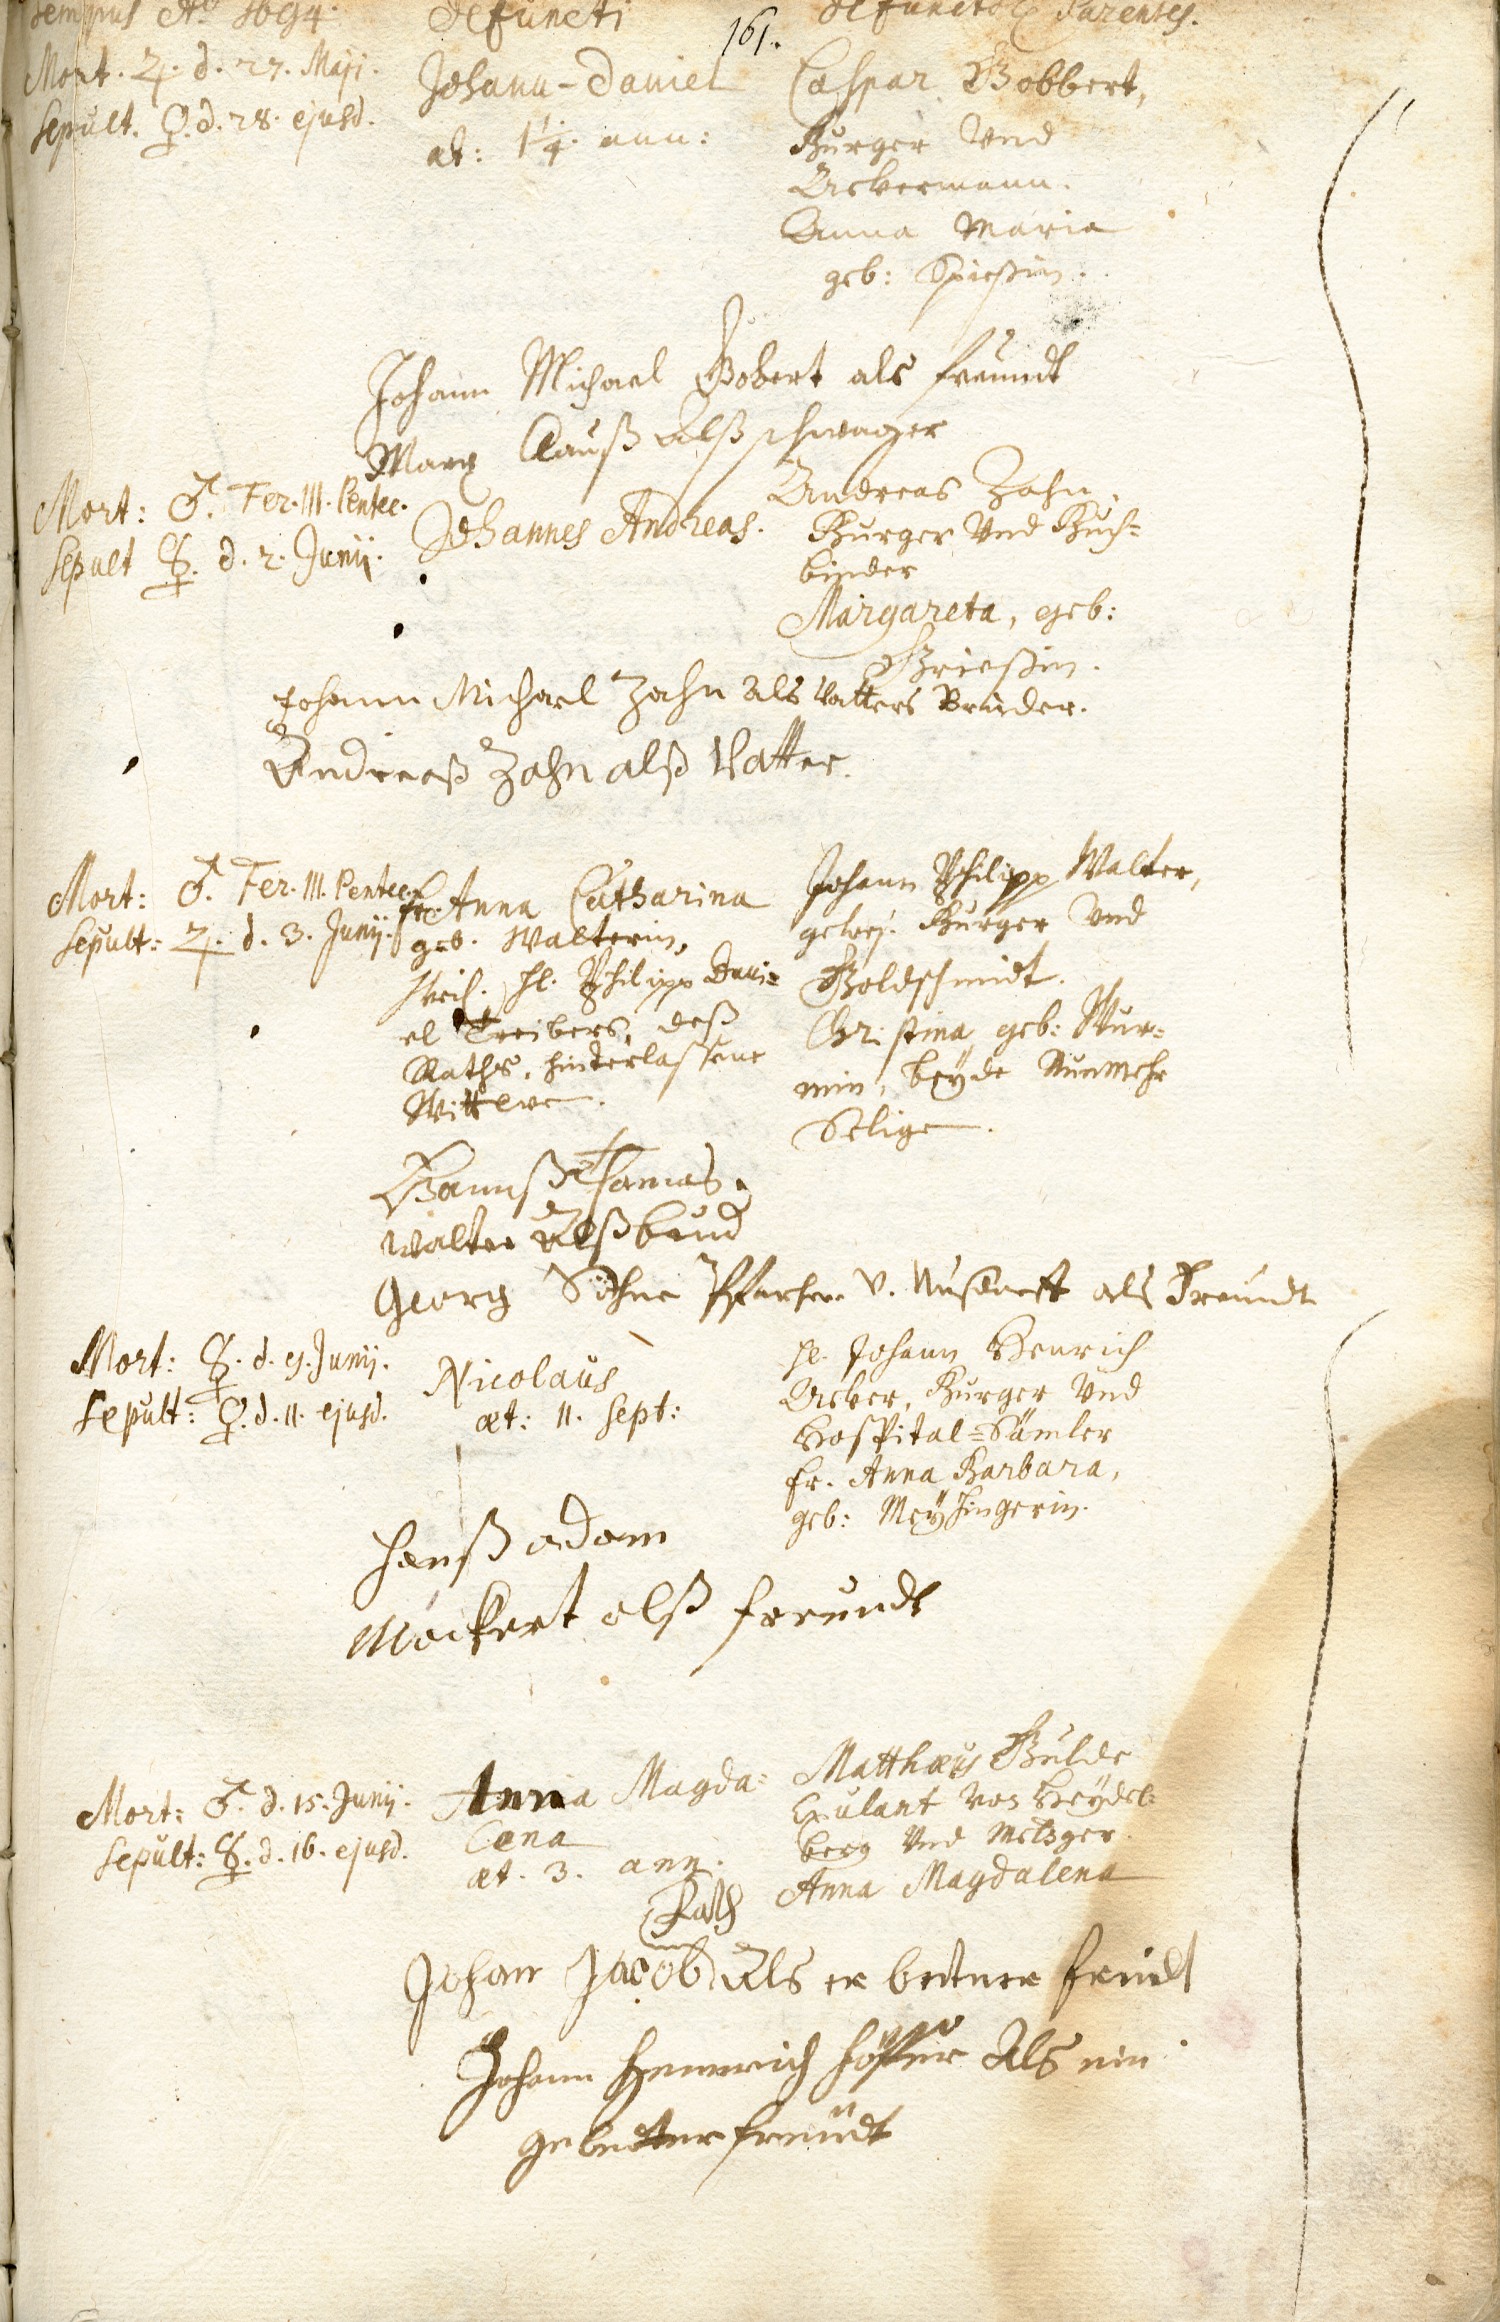 Tempus Aō 1694.
Defuncti
161.
Defunctor Parentes.
Mort. ♃. d. 27. Maji.
Sepult. ♀. d. 28. ejusd.
Johann-Daniel
æt: 1¼. ann:
Caspar Gobbert,
Burger Und
Ackermann.
Anna Maria
geb: Spießin.
Johann Michael Gobert als freundt
Marx Clauß Alß schwager
Mort: ♂. Fer. III. Pentec.
Sepult ☿. d. 2. Junij.
Johannes Andreas.
Andreas Zahn,
Burger Und Buch=
binder
Margareta, geb:
Grießin.
Johann Michael Zahn als Vatters Bruder.
Andreaß Zahn alß Vatter.
Mort: ♂. Fer. III. Pentec.
Sepult: ♃. d. 3. Junij.
Fr. Anna Catharina
geb. Walterin,
H. Philipp Dani=
el Treibers, deß
Raths, hinterlaßene
Wittwe.
Johann Philipp Walter,
gewes. Burger Und
Goldschmidt.
Christina, geb: Wur=
min, beyde Nunmehr
Selige.
Hannß Thomas
Walter Alß
Georg Pfarherr v. als Freundt
Mort: ☿. d. 9. Junij.
Sepult: ♀. d. 11. ejusd.
Nicolaus
æt: 11. Sept:
H. Johann Henrich
Acker, Burger Und
Hospital=Sämler
Fr. Anna Barbara,
geb: Meysingerin.
Hanß adam
Möckert alß freundt
Mort: ♂. d. 15. Junij.
Sepult: ☿. d. 16. ejusd.
Anna Magda=
lena
æt. 3. ann.
Matthæus Gulde
Exulant Von Heydel=
berg Und Metzger.
Anna Magdalena
Johan Jacob Als er betner freindt
Johann Heinrich Als ein
gebetter freindt